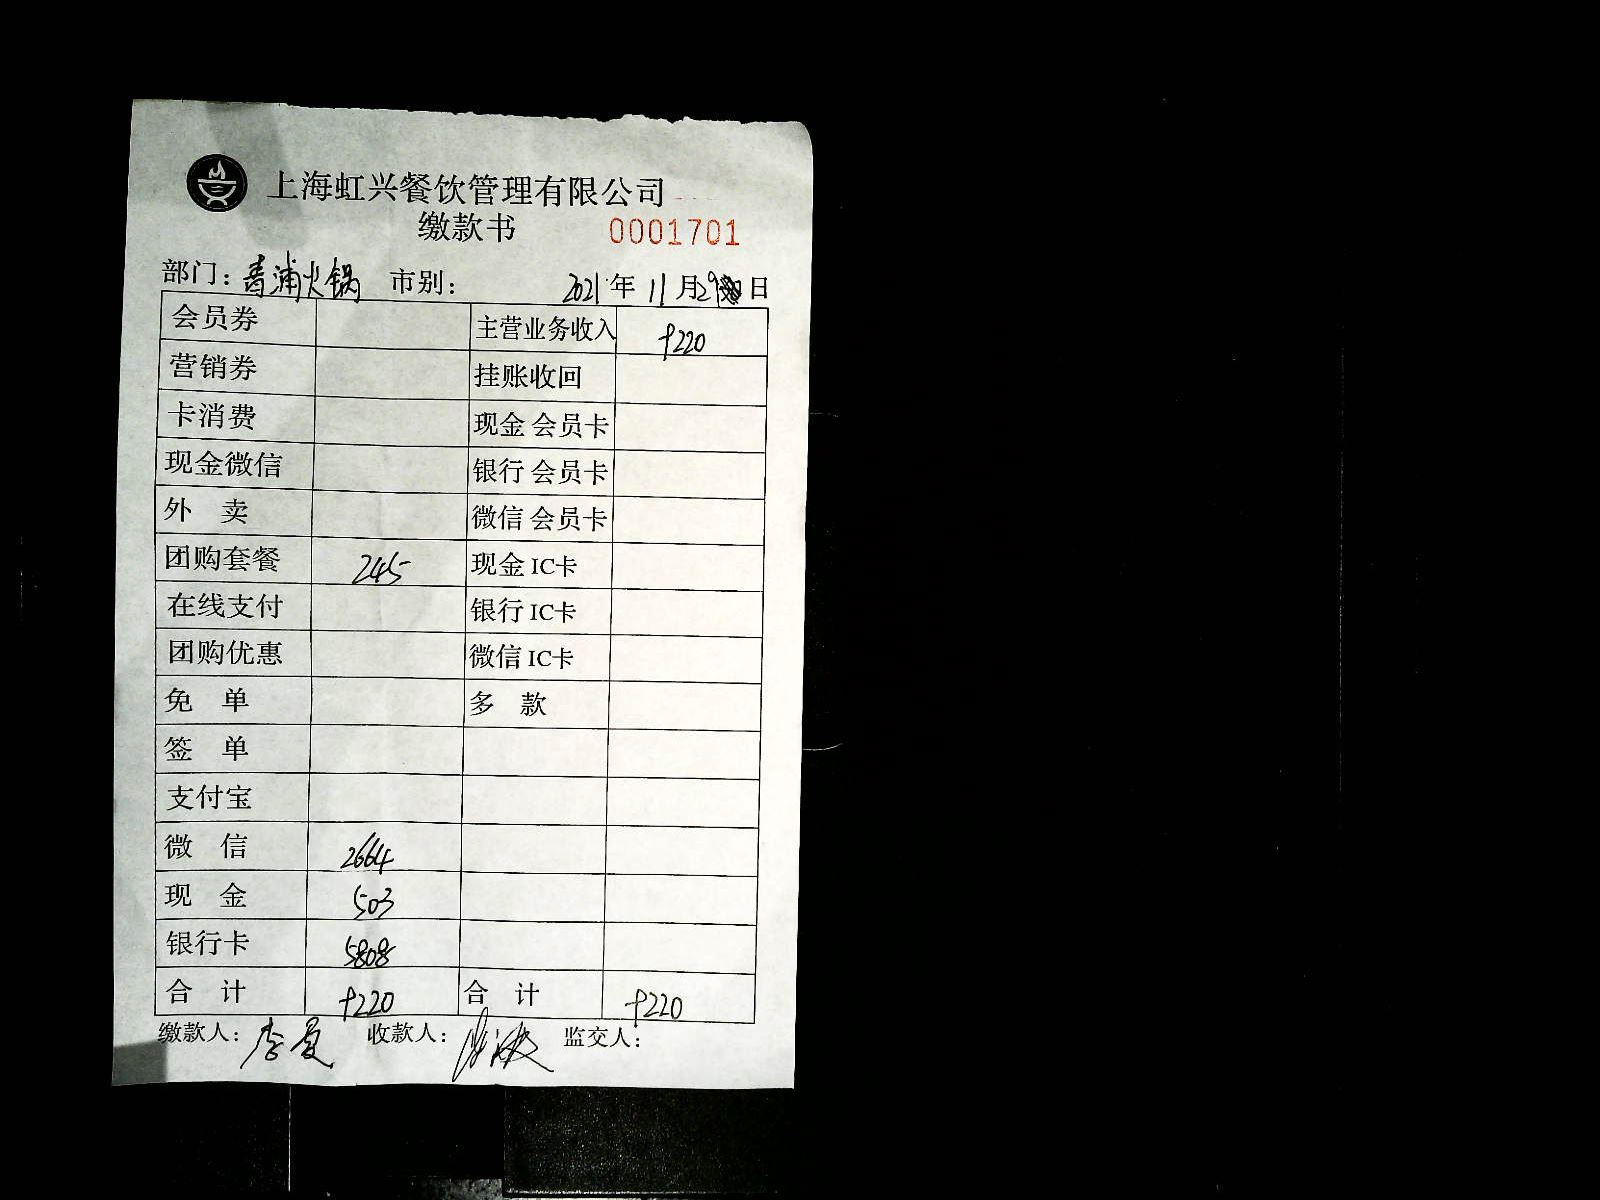 上海虹兴餐饮管理有限公司
缴款书 0001701
部门：青浦火锅 市别： 2021年11月29日
会员券 主营业务收入 9220
营销券 挂账收回
卡消费 现金 会员卡
现金微信 银行 会员卡
外 卖 微信 会员卡
团购套餐 245 现金 IC卡
在线支付 银行 IC卡
团购优惠 微信 IC卡
免 单 多 款
签 单
支付宝
微 信 2664
现 金 503
银行卡 5808
合 计 9220 合 计 9220
缴款人：李 收款人： 监交人：